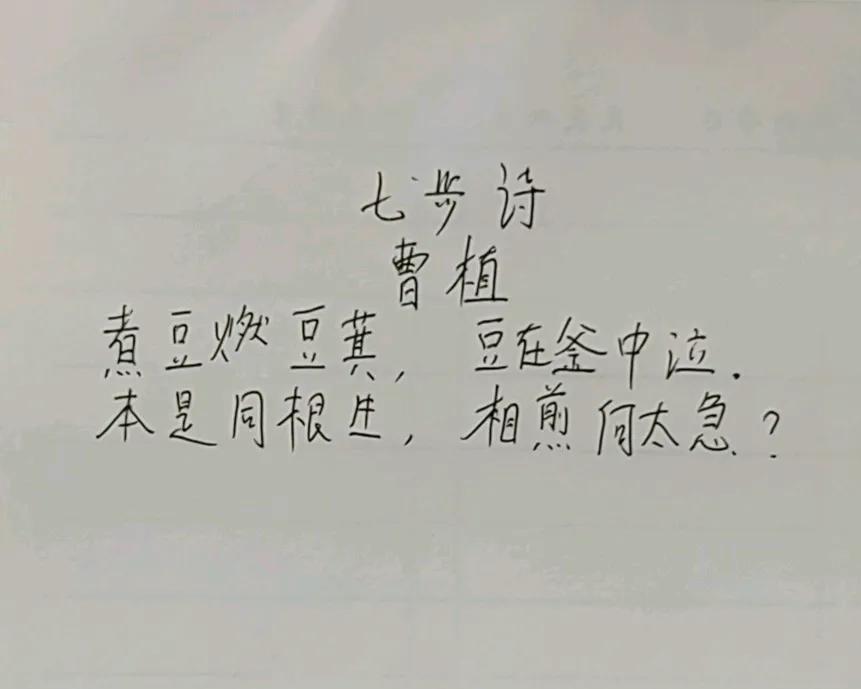 七步诗
曹植
煮豆燃豆萁, 豆在釜中泣.
本是同根生, 相煎何太急?